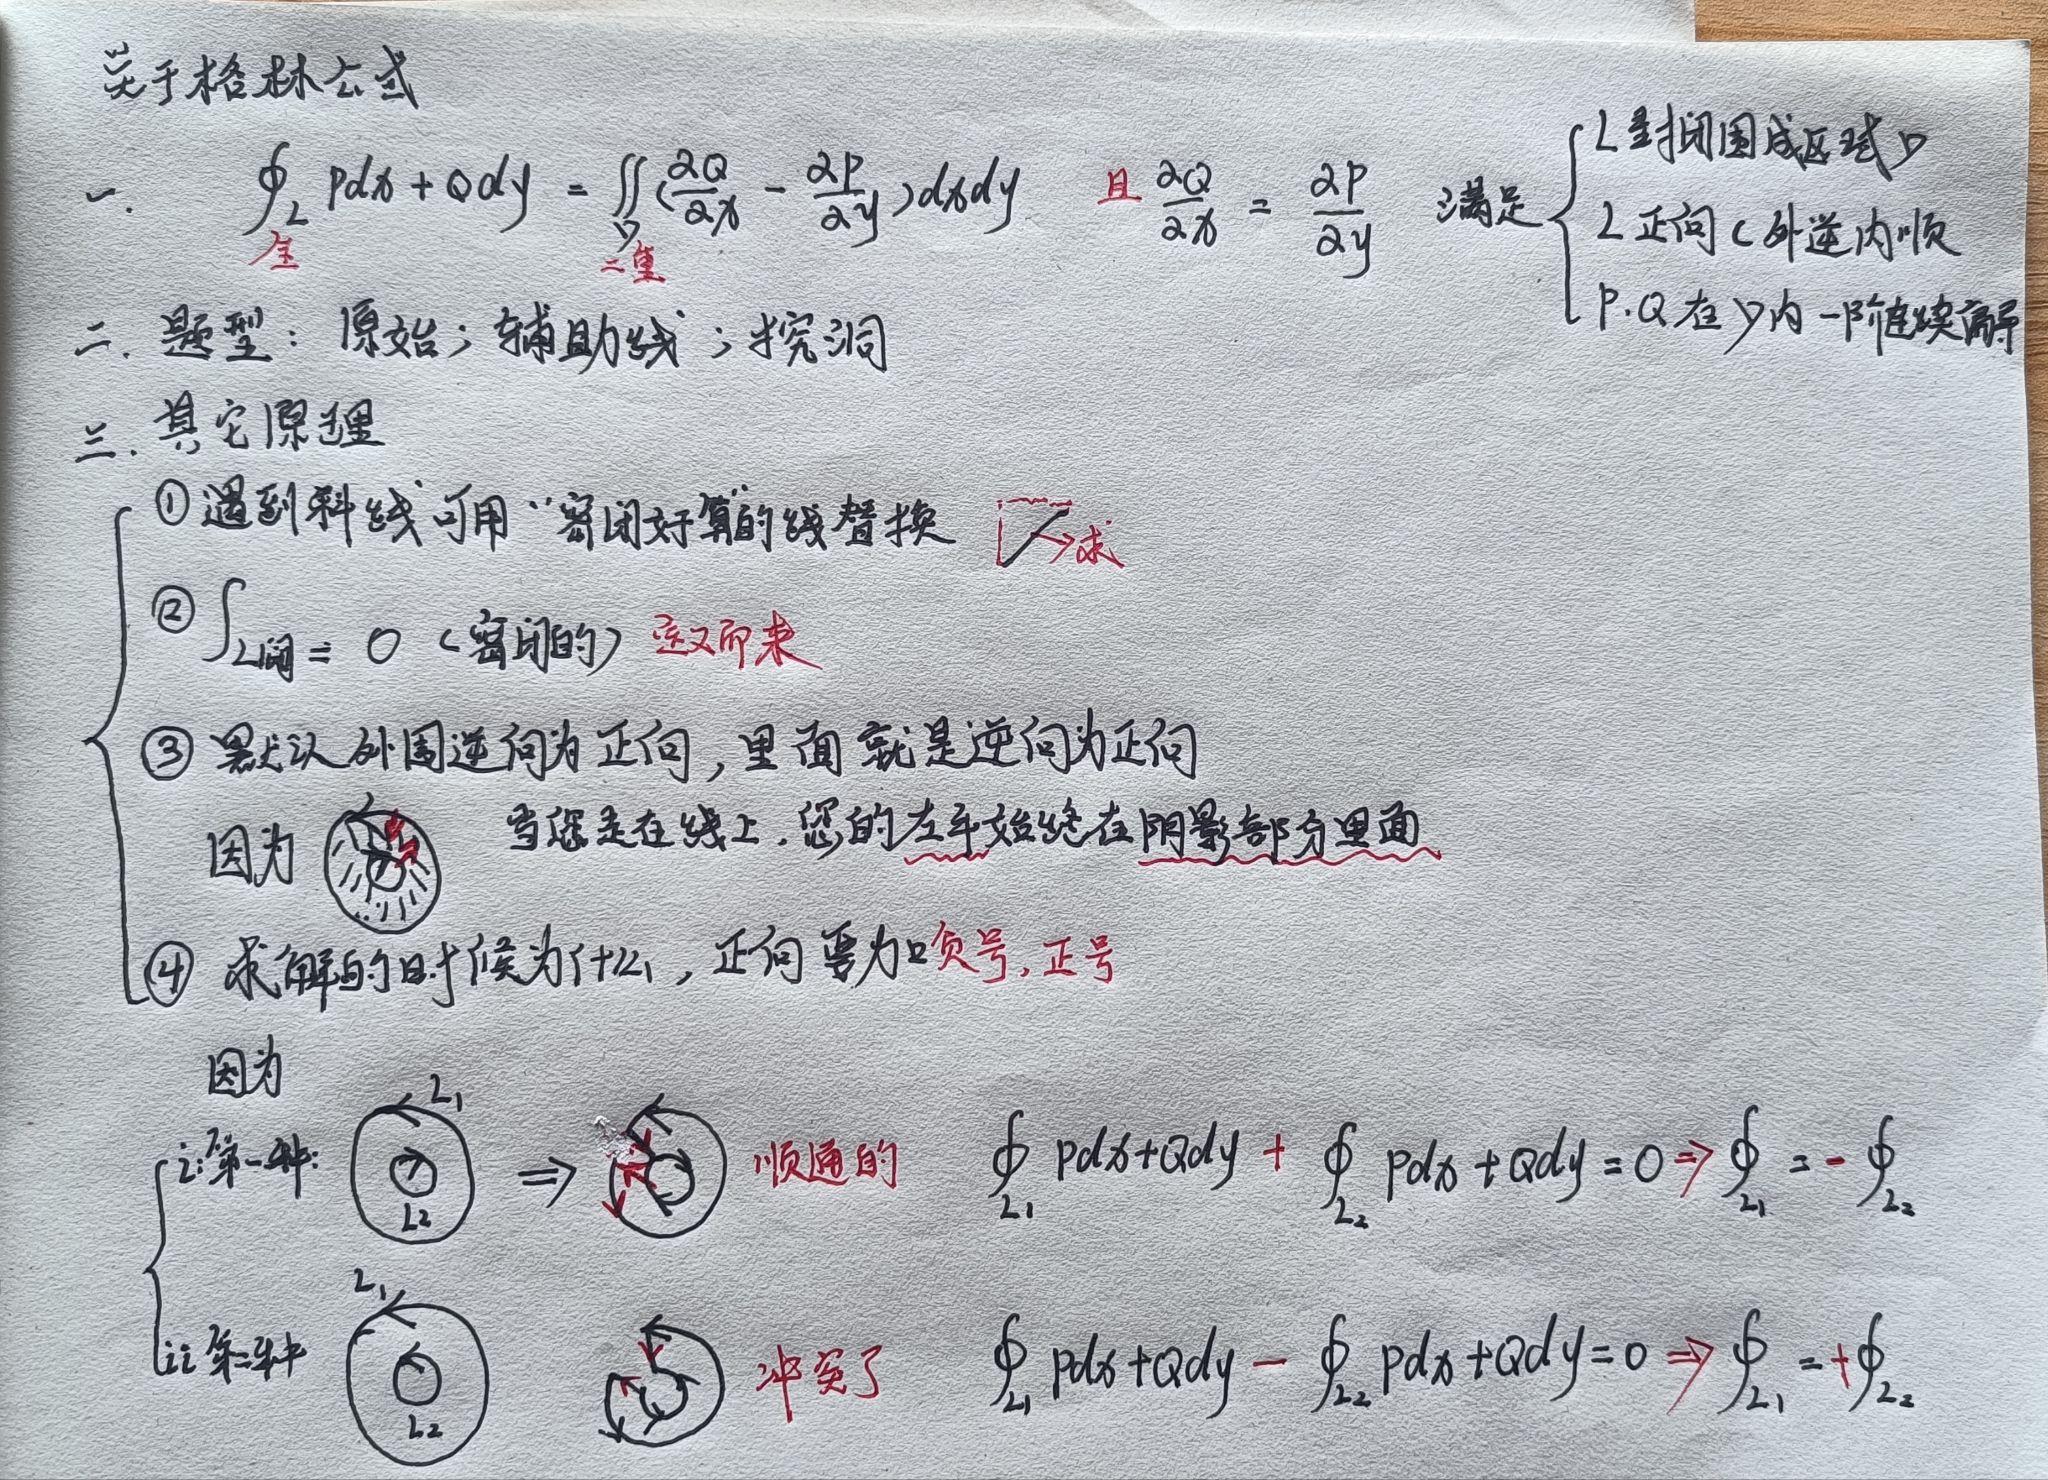 关于格林公式
一. ∮_L Pdx+Qdy = ∬_D (∂Q/∂x - ∂P/∂y)dxdy 且 ∂Q/∂x = ∂P/∂y 满足
L封闭围成区域D
L正向(外逆内顺
P.Q在D内一阶连续偏导
二重
二. 题型: 原始; 辅助线; 挖洞
三. 其它原理
① 遇到斜线可用"密闭好算"的线替换 求
② ∫_L闭 = 0 (密闭的) 定义而来
③ 默认外围逆向为正向, 里面就是逆向为正向
因为 当您走在线上, 您的左手始终在阴影部分里面
④ 求解的时候为什么, 正向要为 负号, 正号
因为
i: 第一种: L₁ L₂ ⇒ 顺通的 ∮_L₁ Pdx+Qdy + ∮_L₂ Pdx+Qdy=0 ⇒ ∮_L₁ = - ∮_L₂
ii 第二种 L₁ L₂ 冲突了 ∮_L₁ Pdx+Qdy - ∮_L₂ Pdx+Qdy=0 ⇒ ∮_L₁ = + ∮_L₂